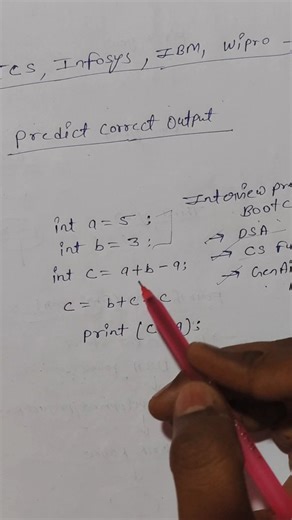 TCS, Infosys, IBM, Wipro -
Predict Correct Output
int a = 5 ;
int b = 3 ;
int c = a+b-a;
c = b+c c
print ( );
Interview
→ DSA
→ CS
→ GenAI